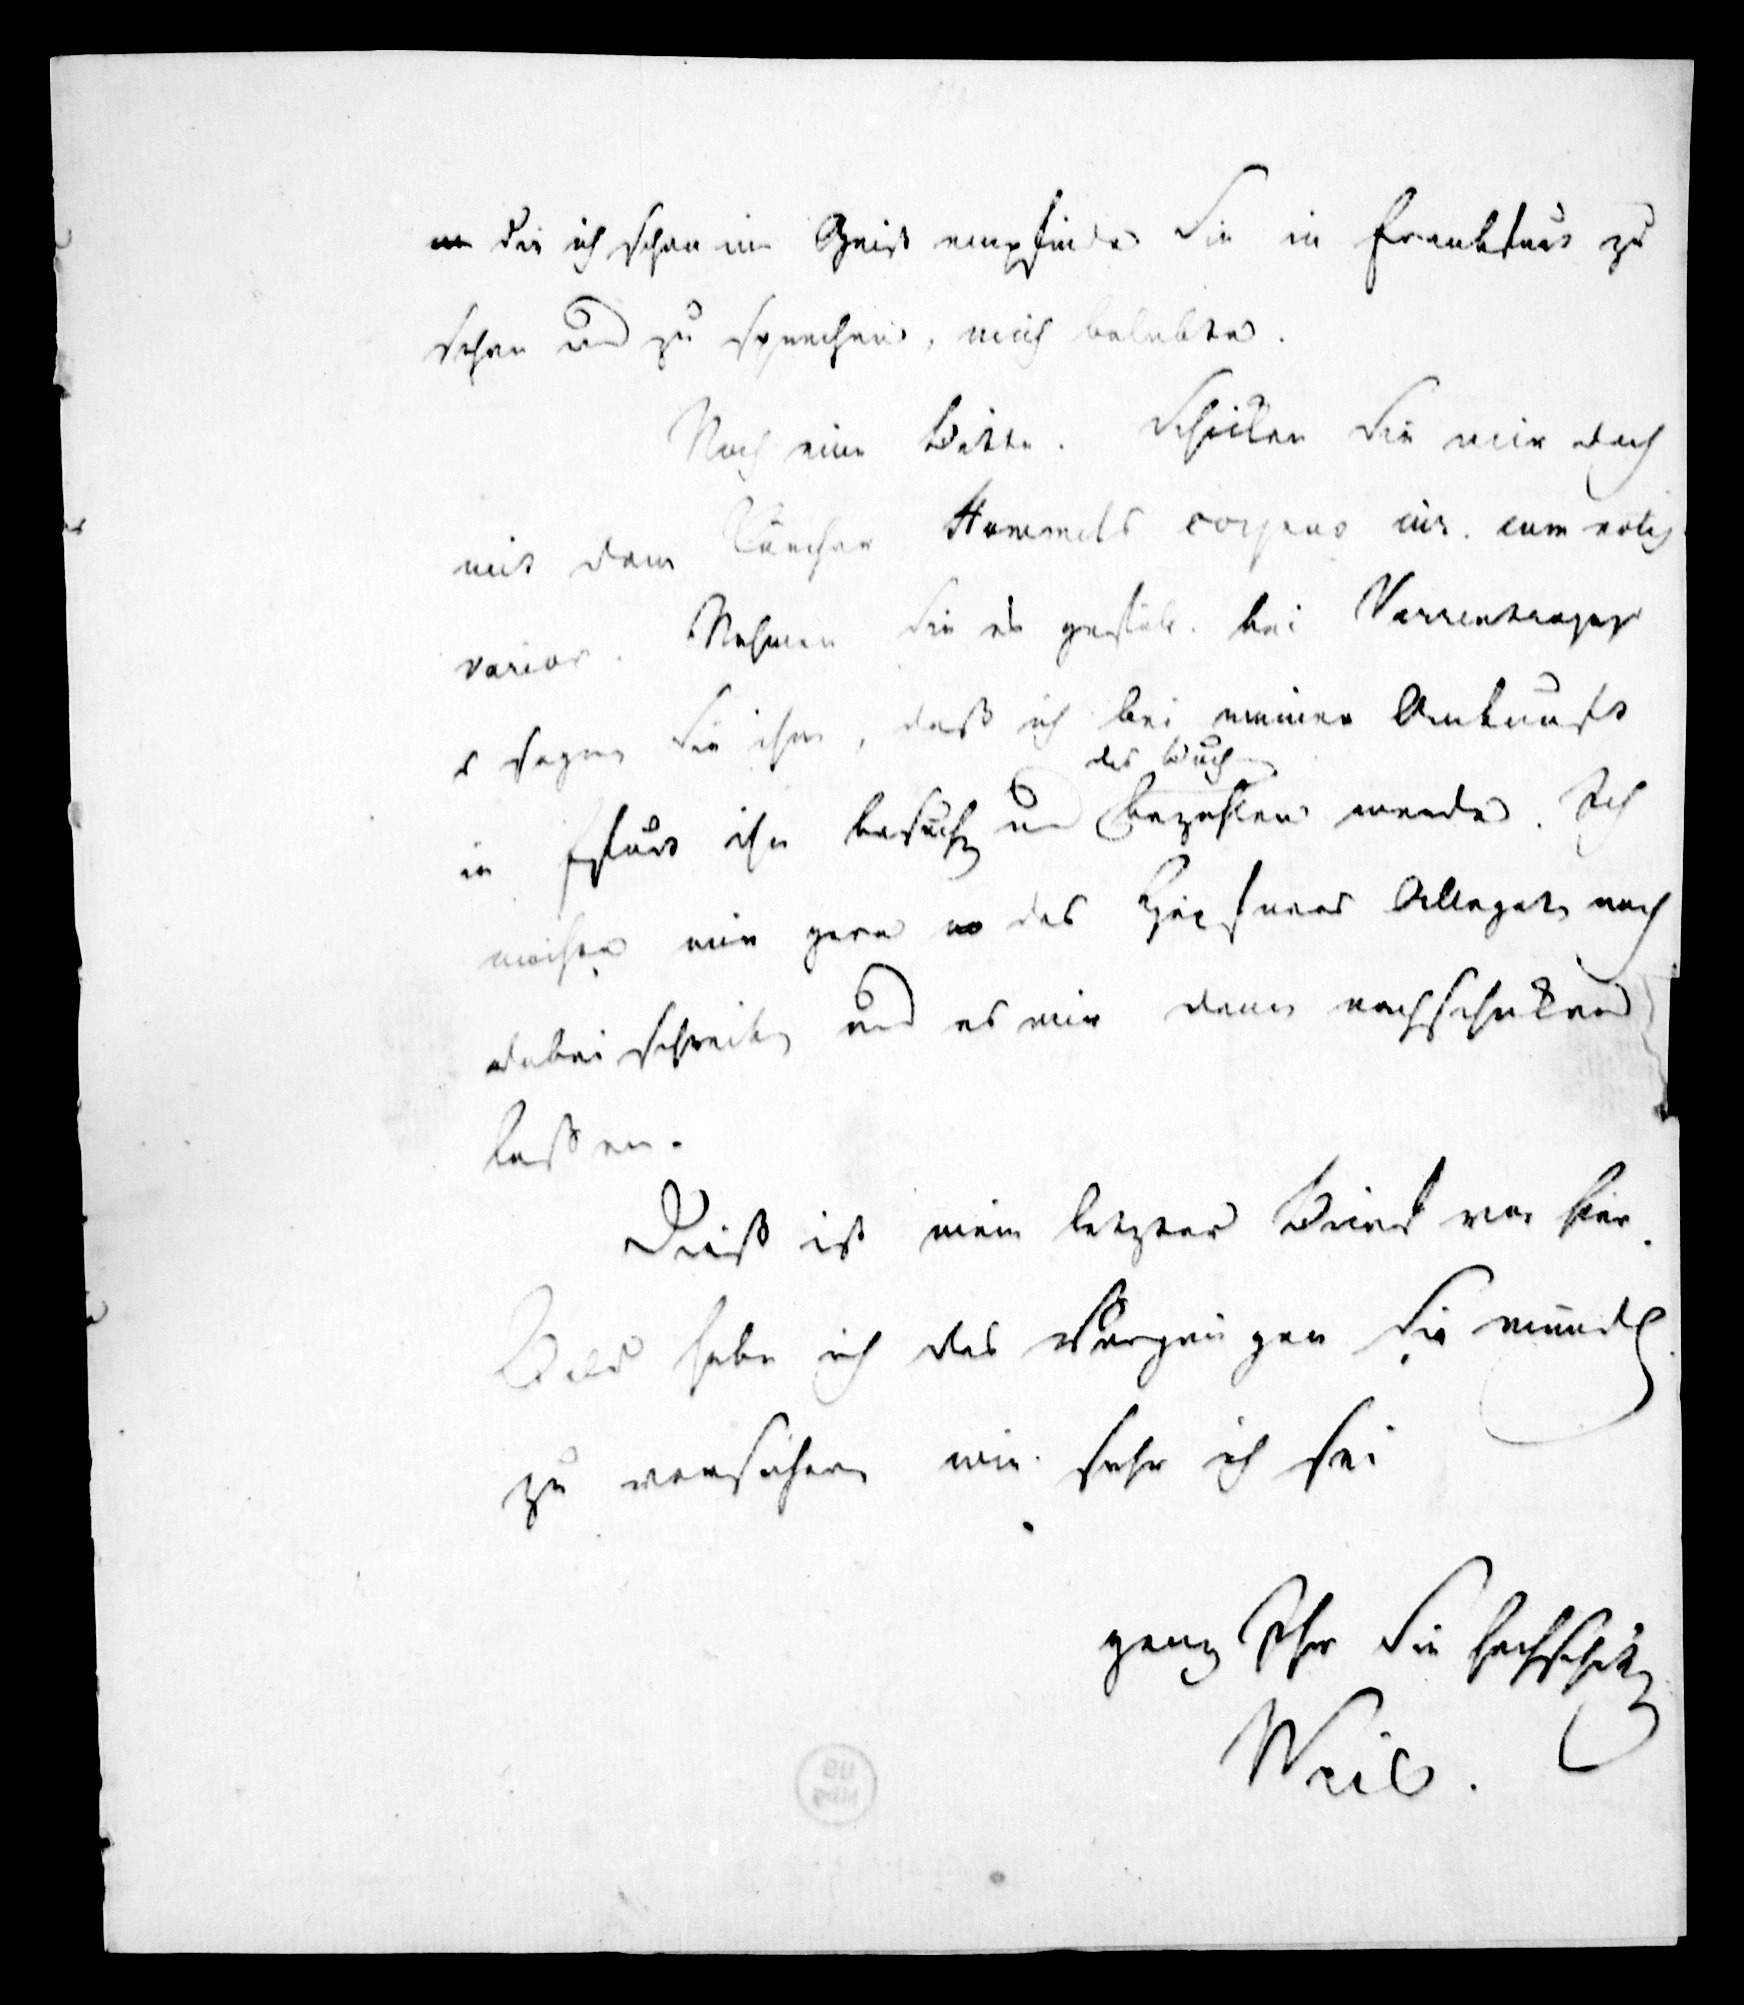 die ich schon im Geist empfinde Sie in Frankfurt zu
sehen und zu sprechen, mich belebte.
Noch eine Bitte. Schicken Sie mir doch
mit dem Hommels corpus iur. cum notis
varior. Nehmen Sie es gefäll. bei Varrentrapp
u sagen Sie ihm, daß ich bei meiner Ankunft
das Buch
in Fhfurt ihn besuchen und bezahlen werde. Ich
möchte mir gern des Höpfners Allegate noch
dabei schreiben und es mir dann nachschicken
laßen.
Dieß ist mein letzter Brief von hier.
Bald habe ich das Vergnügen Sie mündl.
zu versichern wie sehr ich sei
ganz Ihr Sie hochschätz
Weis.